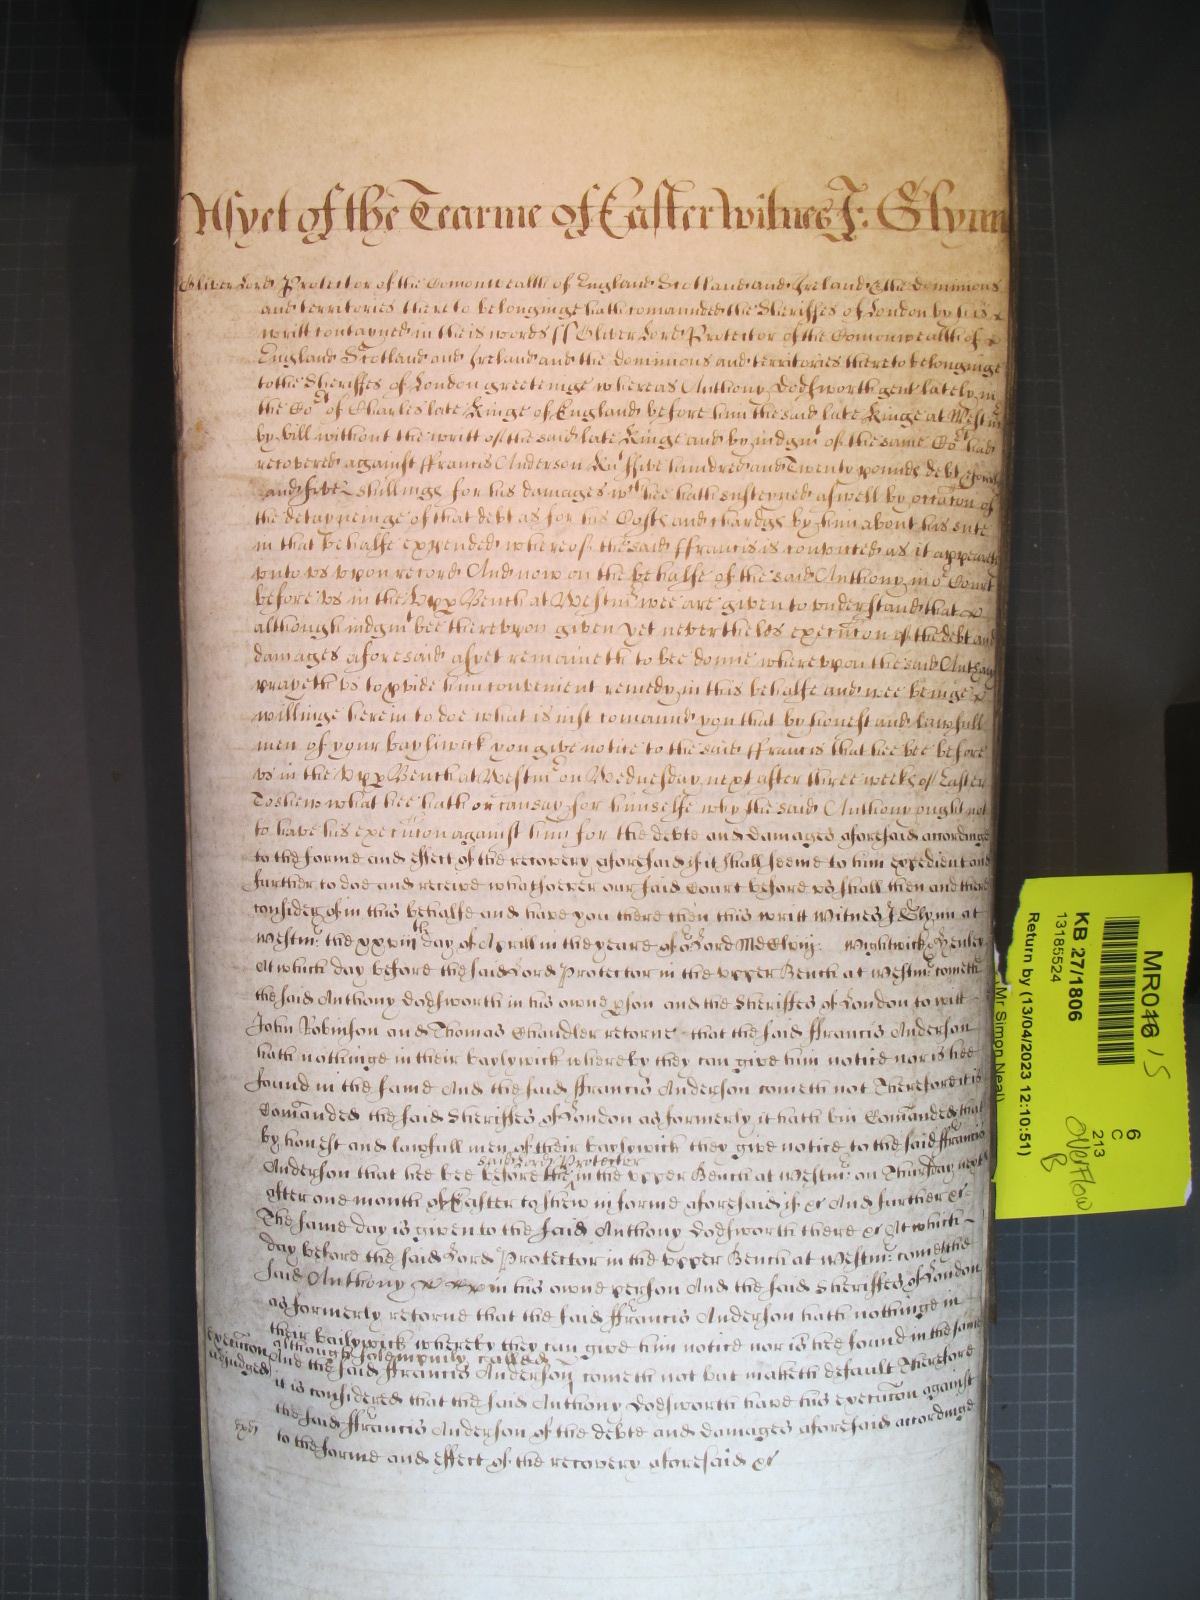 Asyet of the Tearme of Easter Witnes J: Glynn
Oliver Lord Protector of the Comonwealth of England Scotland and Ireland & the dominions
and territories there to belonginge hath comanded the Sheriffes of London by his
writt contayned in theis words ss Oliver Lord Protector of the Comonwealth of
England Scotland and Ireland and the dominions and territories thereto belonginge
to the Sheriffes of London greetinge whereas Anthony Dodsworth gent lately in
the Cot of Charles late Kinge of England before him the said late Kinge at Westmr
by bill without the writt of the said late Kinge and by iudgmt of the same Cot had
recovered against ffrancis Anderson Knt ffive hundred and Twenty pounds debt
and five shillings for his damages wch hee hath susteyned aswell by occacon of
the detayneinge of that debt as for his Costs and chardgs by him about his sute
in that behalfe expended whereof the said ffrancis is convicted as it appeares
vnto vs vpon record And now on the behalfe of the said Anthony in or Court
before vs in the Vpp Bench at Westmr wee are given to vnderstand that
although iudgmt bee therevpon given yet neverthelds execucon of the debt and
damages aforesaid asyet remaineth to bee donne wherevpon the said Anthony
prayeth vs to pvide him convenient remedy in this behalfe and wee beinge
willinge herein to doe what is iust comaund you that by honest and lawfull
men of your bayliwick you give notice to the said ffrancis that hee bee before
vs in the Vpp Bench at Westmr on Wednesday next after three weeks of Easter
To shew what hee hath or can say for himselfe why the said Anthony ought not
to have his execucon against him for the debte and damages aforesaid accordinge
to the forme and effect of the recovery aforesaid if it shall seeme to him expedient and
further to doe and receive whatsoever our said Court before vs shall then and there
consider of in this behalfe and have you there then this writt Witnes J Glynn at
Westmr the xxiiith day of Aprill in the yeare of or Lord Wightwick & Henley
At which day before the said Lord Protector in the vpper Bench at Westmr cometh
the said Anthony Dodsworth in his owne pson and the Sheriffes of London to witt
John Robinson and Thomas Chandler retorne that the said ffrancis Anderson
hath nothinge in their baylywick whereby they can give him notice nor is hee
found in the same And the said ffrancis Anderson cometh not Therefore it is
Comanded the said Sheriffes of London as formerly it hath bin Comanded that
by honest and lawfull men of their baylywick they give notice to the said ffrancis
said Lord Protector
Anderson that hee bee before the in the vpper Bench at Westmr on Thursday next
after one month of Easter to shew in forme aforesaid if &c And further &c
The same day is given to the said Anthony Dodsworth there &c At which
day before the said Lord Protector in the vpper Bench at Westmr cometh the
said Anthony in his owne person And the said Sheriffes of London
as formerly retorne that the said ffrancis Anderson hath nothinge in
their bailywick whereby they can give him notice nor is hee found in the same
although solempnily called
Execucon adjudged
And the said ffrancis Anderson cometh not but maketh default Therefore
it is considered that the said Anthony Dodsworth have his execucon against
the said ffrancis Anderson of the debte and damages aforesaid accordinge
to the forme and effect of the recovery aforesaid &c
MR016 15
KB 27/1806
13185524
Return by (13/04/2023 12:10:51)
Mr Simon Neal)
6
C
213
Overflow
B